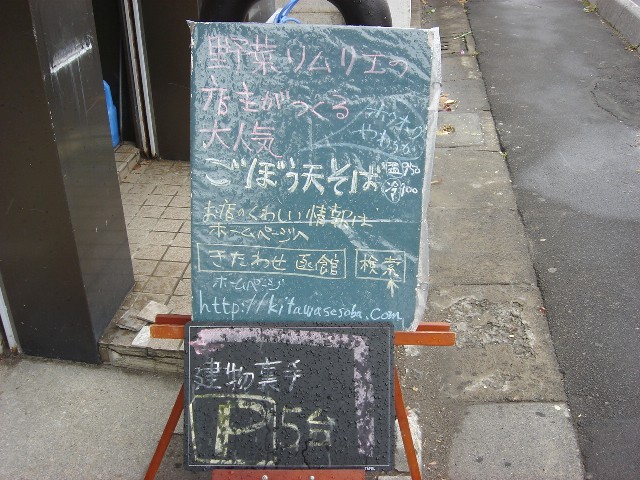 野菜ソムリエの
店主がつくる
大人気
ホクホク
やわらか
ごぼう天そば
温950
冷1100
お店のくわしい情報は
ホームページへ
きたわせ 函館 検索
ホームページ
http://kitawasesoba.com
建物裏手
P15台